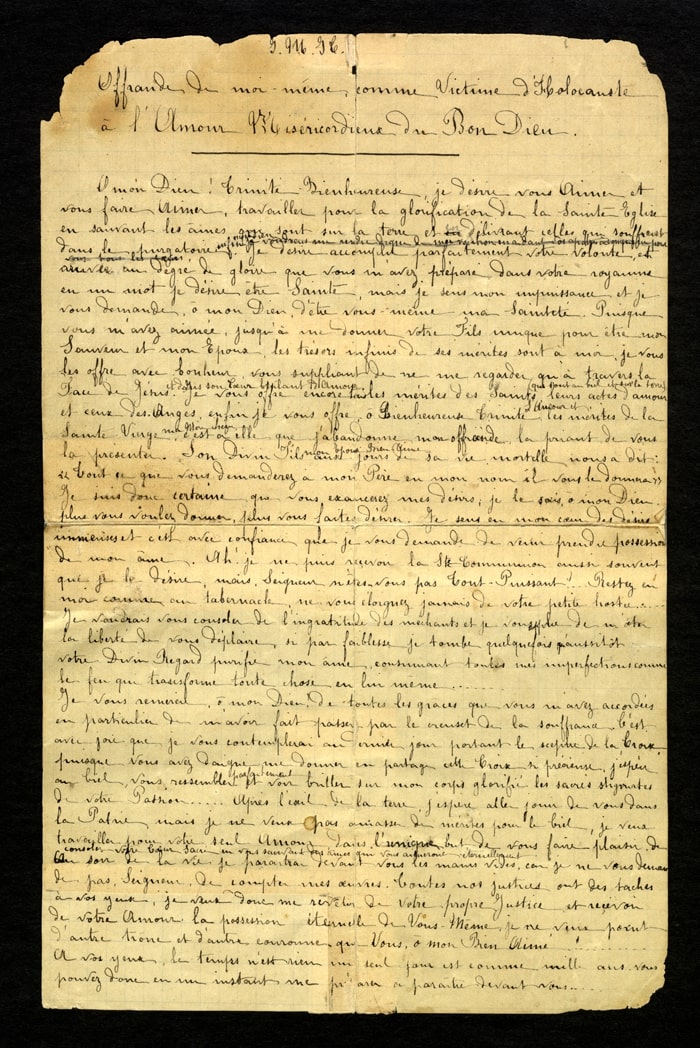 J. M. J. T.
Offrande de moi-même, comme Victime d'Holocauste
à l'Amour Miséricordieux du Bon Dieu.
O mon Dieu ! Trinité Bienheureuse, je désire vous Aimer et
vous faire Aimer, travailler pour la glorification de la Sainte Eglise
en sauvant les âmes qui sont sur la terre et délivrant celles qui souffrent
dans le purgatoire. Je désire accomplir parfaitement votre volonté et
arriver au degré de gloire que vous m'avez préparé dans votre royaume
en un mot je désire être Sainte, mais je sens mon impuissance et je
vous demande, ô mon Dieu, d'être vous-même ma Sainteté. Puisque
vous m'avez aimée, jusqu'à me donner votre Fils unique pour être mon
Sauveur et mon Epoux, les trésors infinis de ses mérites sont à moi, je vous
les offre avec bonheur, vous suppliant de ne me regarder qu'à travers la
(qui sont au Ciel et sur la terre)
Face de Jésus et dans son Cœur brûlant d'Amour Je vous offre encore tous les mérites des Saints leurs actes d'amour
et ceux des Anges, enfin je vous offre, ô Bienheureuse Trinité l'Amour et les mérites de la
Sainte Vierge ma Mère chérie c'est à elle que j'abandonne mon offrande la priant de vous
la présenter. Son Divin Fils mon Epoux Bien-Aimé aux jours de sa vie mortelle nous a dit :
« Tout ce que vous demanderez à mon Père en mon nom il vous le donnera »
Je suis donc certaine que vous exaucerez mes désirs ; je le sais, ô mon Dieu,
plus vous voulez donner, plus vous faites désirer. Je sens en mon cœur des désirs
immenses et c'est avec confiance que je vous demande de venir prendre possession
de mon âme. Ah ! je ne puis recevoir la Ste Communion aussi souvent
que je le désire, mais, Seigneur n'êtes-vous pas Tout-Puissant ?... Restez en
moi comme au tabernacle, ne vous éloignez jamais de votre petite hostie.....
Je voudrais vous consoler de l'ingratitude des méchants et je vous supplie de m'ôter
la liberté de vous déplaire, si par faiblesse je tombe quelquefois qu'aussitôt
votre Divin Regard purifie mon âme, consumant toutes mes imperfections comme
le feu qui transforme toute chose en lui même......
Je vous remercie, ô mon Dieu, de toutes les grâces que vous m'avez accordées
en particulier de m'avoir fait passer par le creuset de la souffrance. C'est
avec joie que je vous contemplerai au dernier jour portant le sceptre de la Croix
puisque vous avez daigné me donner en partage cette Croix si précieuse, j'espère
au Ciel, vous ressembler parfaitement et voir briller sur mon corps glorifié les sacrés stigmates
de votre Passion..... Après l'exil de la terre, j'espère aller jouir de vous dans
la Patrie, mais je ne veux pas amasser de mérites pour le Ciel, je veux
travailler pour votre seul Amour dans l'unique but de vous faire plaisir de
consoler votre Cœur Sacré en vous sauvant des âmes qui vous aimeront éternellement
Au soir de la vie je paraîtrai devant vous les mains vides, car je ne vous demande
pas, Seigneur, de compter mes œuvres. Toutes nos justices ont des taches
à vos yeux, je veux donc me revêtir de votre propre Justice et recevoir
de votre Amour la possession éternelle de Vous-Même, je ne veux point
d'autre trône et d'autre couronne que Vous, ô mon Bien Aimé !
A vos yeux, le temps n'est rien un seul jour est comme mille ans vous
pouvez donc en un instant me préparer à paraître devant vous.....